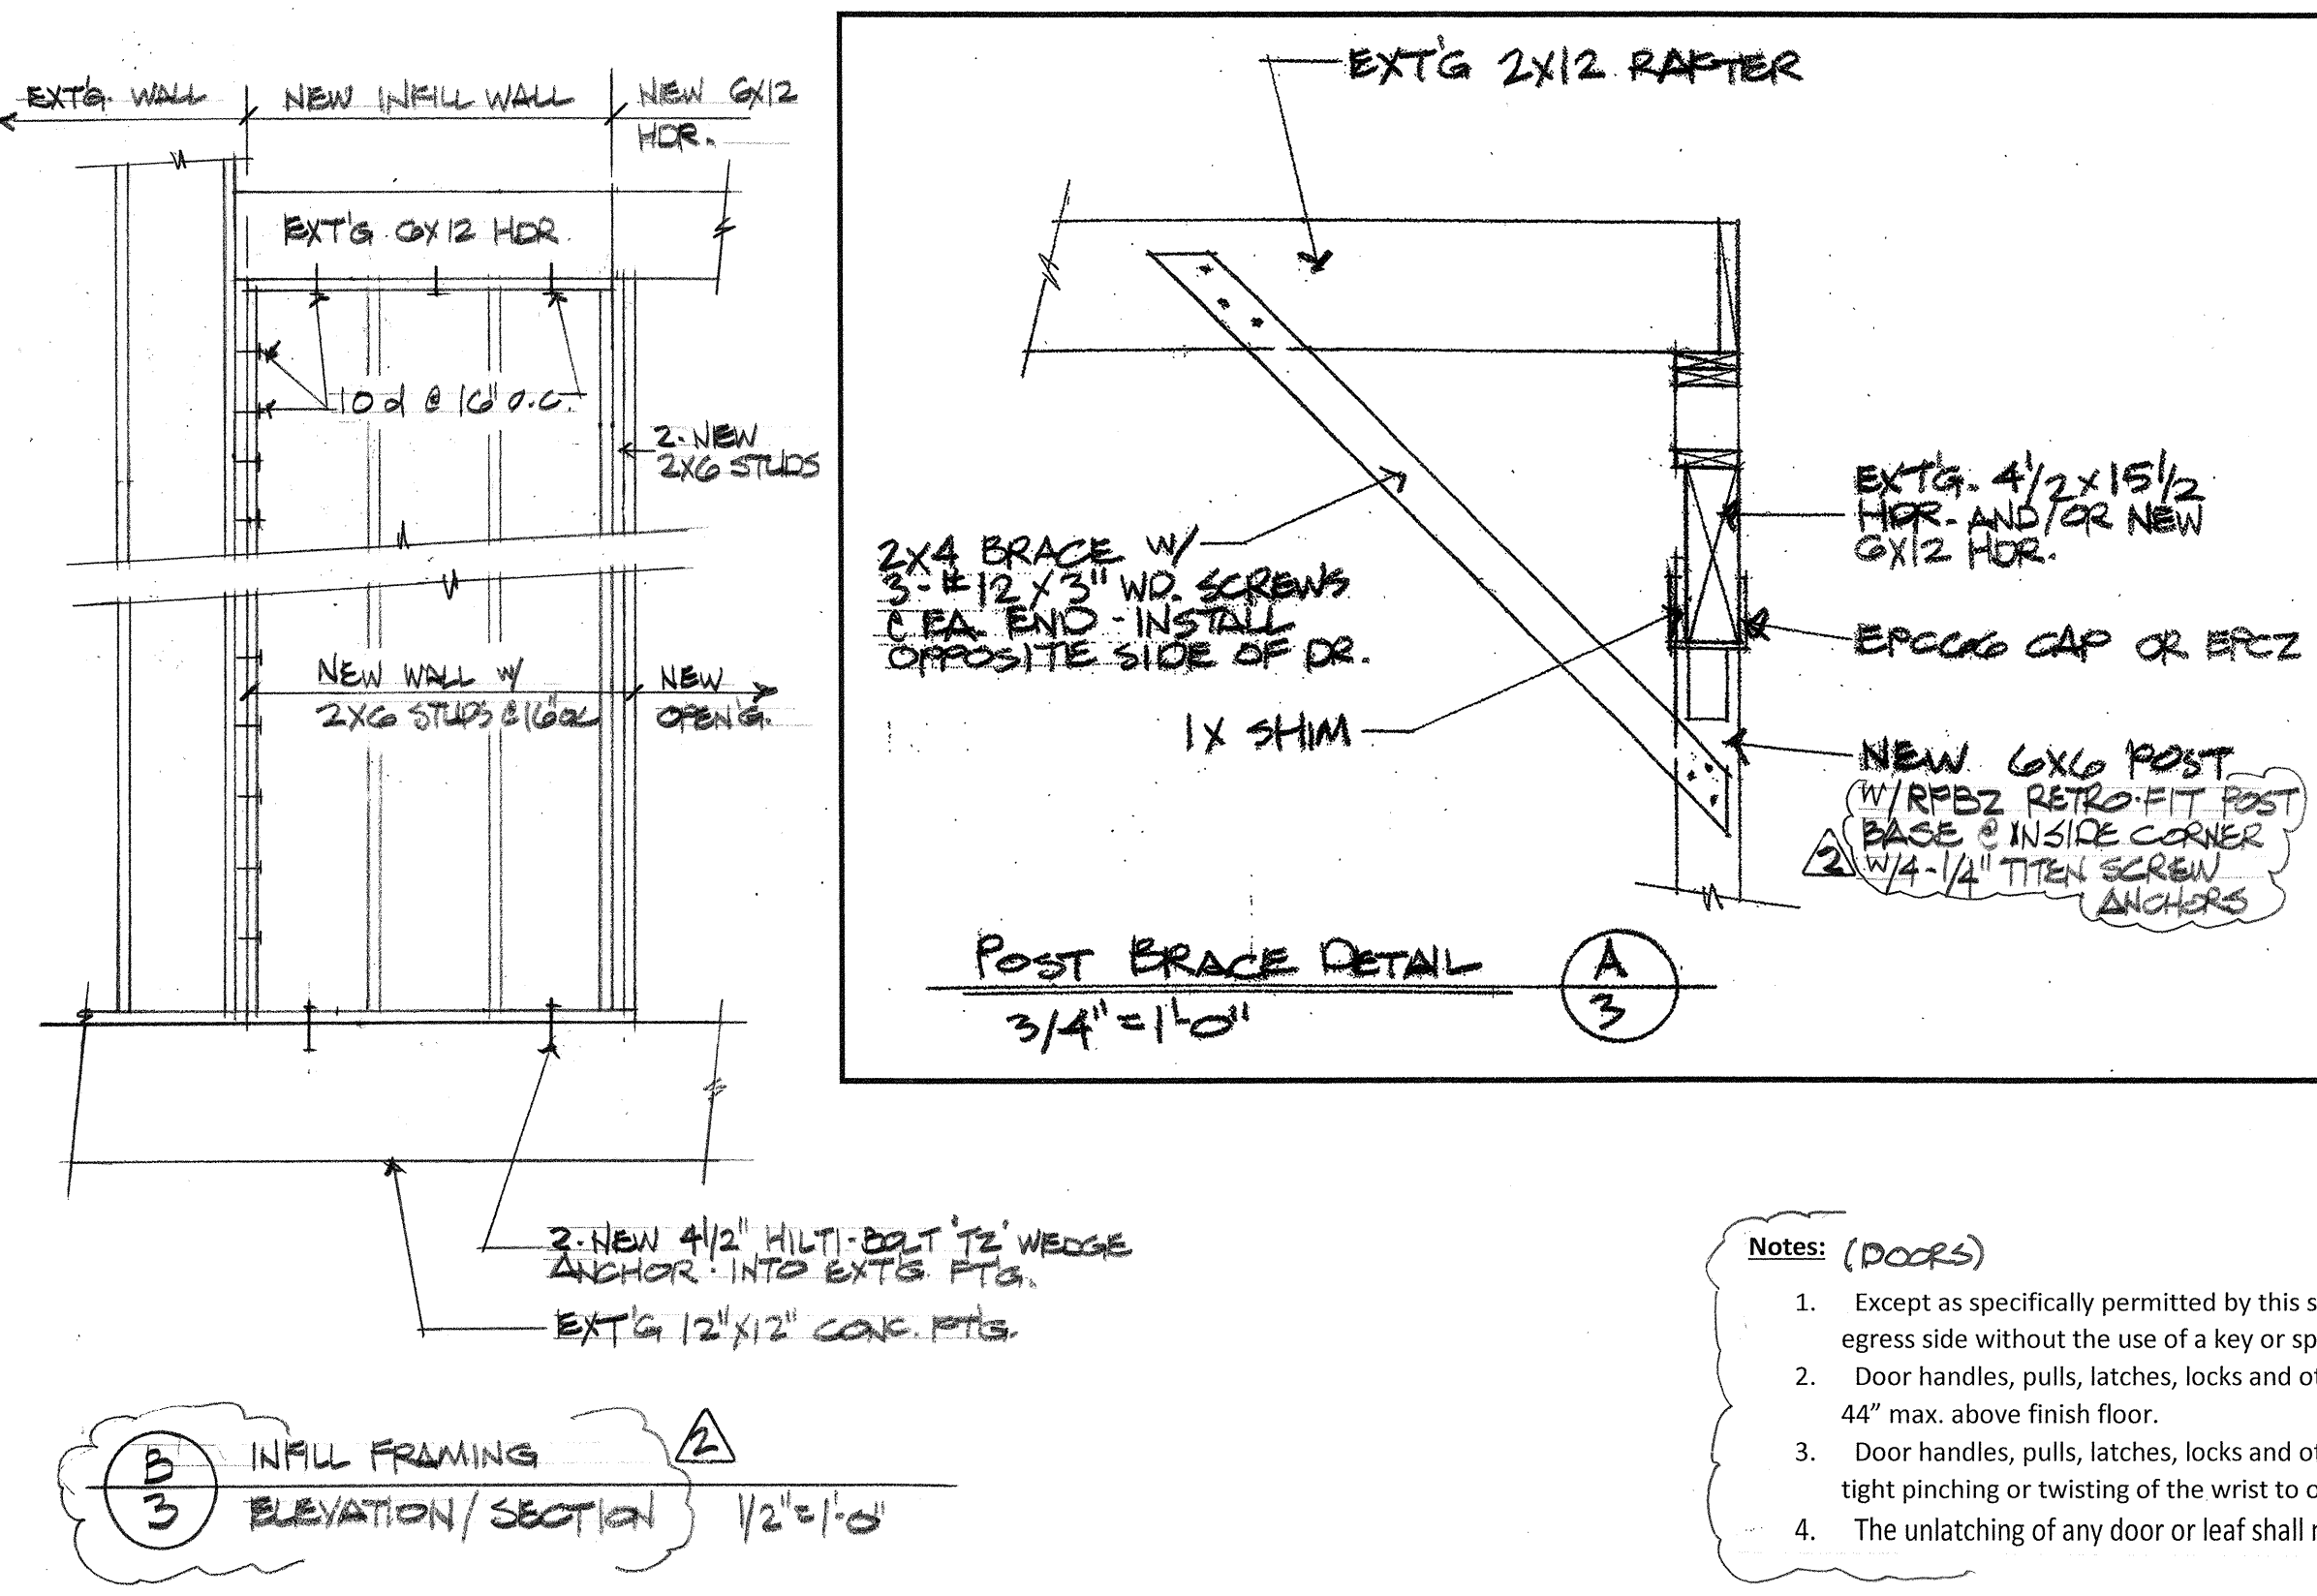 EXT'G. WALL
NEW INFILL WALL
NEW 6X12
HDR.
EXT'G 6X12 HDR.
10d @ 16" O.C.
2-NEW
2X6 STUDS
NEW WALL W/
2X6 STUDS @ 16" OC
NEW
OPEN'G.
2-NEW 4 1/2" HILTI-BOLT 'TZ' WEDGE
ANCHOR - INTO EXT'G. FT'G.
EXT'G 12"X12" CONC. FT'G.
B
3
INFILL FRAMING
ELEVATION / SECTION
2
1/2"=1'-0"
EXT'G 2X12 RAFTER
2X4 BRACE W/
3-#12 X 3" WD. SCREWS
@ EA. END - INSTALL
OPPOSITE SIDE OF DR.
1X SHIM
EXT'G. 4 1/2 X 15 1/2
HDR. AND/OR NEW
6X12 HDR.
EPC66 CAP OR EPCZ
NEW 6X6 POST
W/RPBZ RETRO-FIT POST
BASE @ INSIDE CORNER
W/4-1/4" TITEN SCREW
ANCHORS
2
POST BRACE DETAIL
3/4"=1'-0"
A
3
Notes: (DOORS)
1. Except as specifically permitted by this s
egress side without the use of a key or sp
2. Door handles, pulls, latches, locks and ot
44” max. above finish floor.
3. Door handles, pulls, latches, locks and of
tight pinching or twisting of the wrist to o
4. The unlatching of any door or leaf shall r